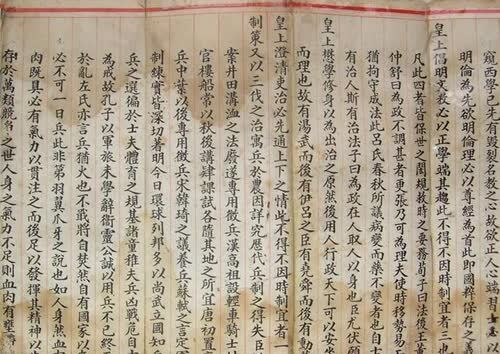 窺西學已先有毀裂名教之心故欲正人心端
明倫為先欲明倫理必以尊經為首此即國粹保存之
皇上倡明文教必以正學端其趨此不得不因時制宜者三也
凡此四者皆保世之閎規救時之要務荀子曰法後王
仲舒曰為政不調甚者更張乃可為理夫使時移勢易
猶拘守成法此呂氏春秋所譏病變而藥不變者也自古
有治人斯有治法子曰為政在人取人以身也臣尤伏願
皇上懋學修身以為出治之原然後用人行政天下可以安坐
而理也故有湯武而後有伊呂之臣有堯舜而後有
皇上澄清吏治必先通上下之情此不得不因時制宜者一
制策又以三代之治寓兵於農因詳究歷代兵制之得失臣
案井田溝洫之法廢遂專用徵兵漢高祖設輕車騎士
官樓船常以秋後講肄課試各隨其地之所宜唐初置
兵中葉以後專用徵兵宋韓琦之議養兵蘇軾之言定軍
制練實皆深切著明今日環球列邦多以尚武立國知兵
兵之選徧於士夫體育之規基諸童稚夫兵凶戰危自古
為戒故孔子以軍旅未學辭衛靈公誠以用兵不已終
於亂左氏亦言兵猶火也不戢將自焚然自有國家以
必不可一日無兵此非第羽翼爪牙之說也如人身然血
肉既具必有氣力以貫注之而後足以發揮其精神以
存於萬類競爭之世人身之氣力不足則血肉有壅